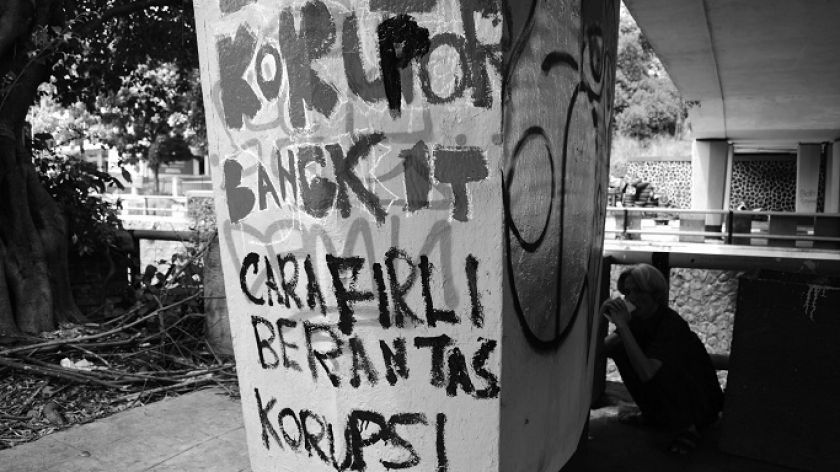 KORUPTOR
BANGKIT
CARA FIRLI
BERANTAS
KORUPSI